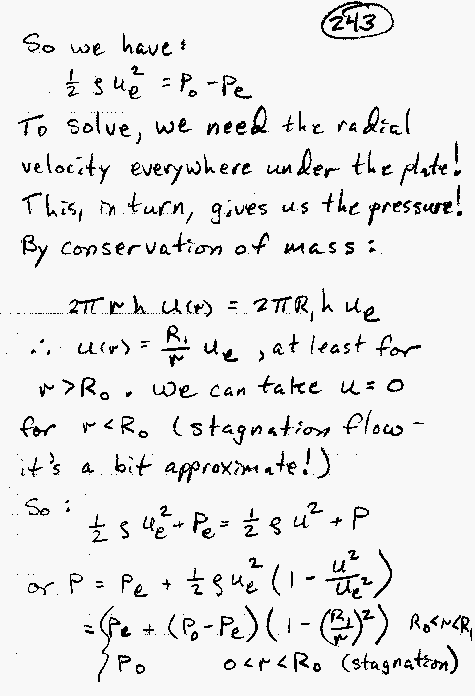 243
So we have:
½ ρ uₑ² = P₀ - Pₑ
To solve, we need the radial
velocity everywhere under the plate!
This, in turn, gives us the pressure!
By conservation of mass:
2π r h u(r) = 2π R₁ h uₑ
∴ u(r) = R₁/r uₑ, at least for
r > R₀. We can take u = 0
for r < R₀ (stagnation flow -
it's a bit approximate!)
So:
½ ρ uₑ² + Pₑ = ½ ρ u² + P
or P = Pₑ + ½ ρ uₑ² (1 - u²/uₑ²)
= { Pₑ + (P₀ - Pₑ)(1 - (R₁/r)²) R₀<r<R₁
P₀ 0<r<R₀ (stagnation)